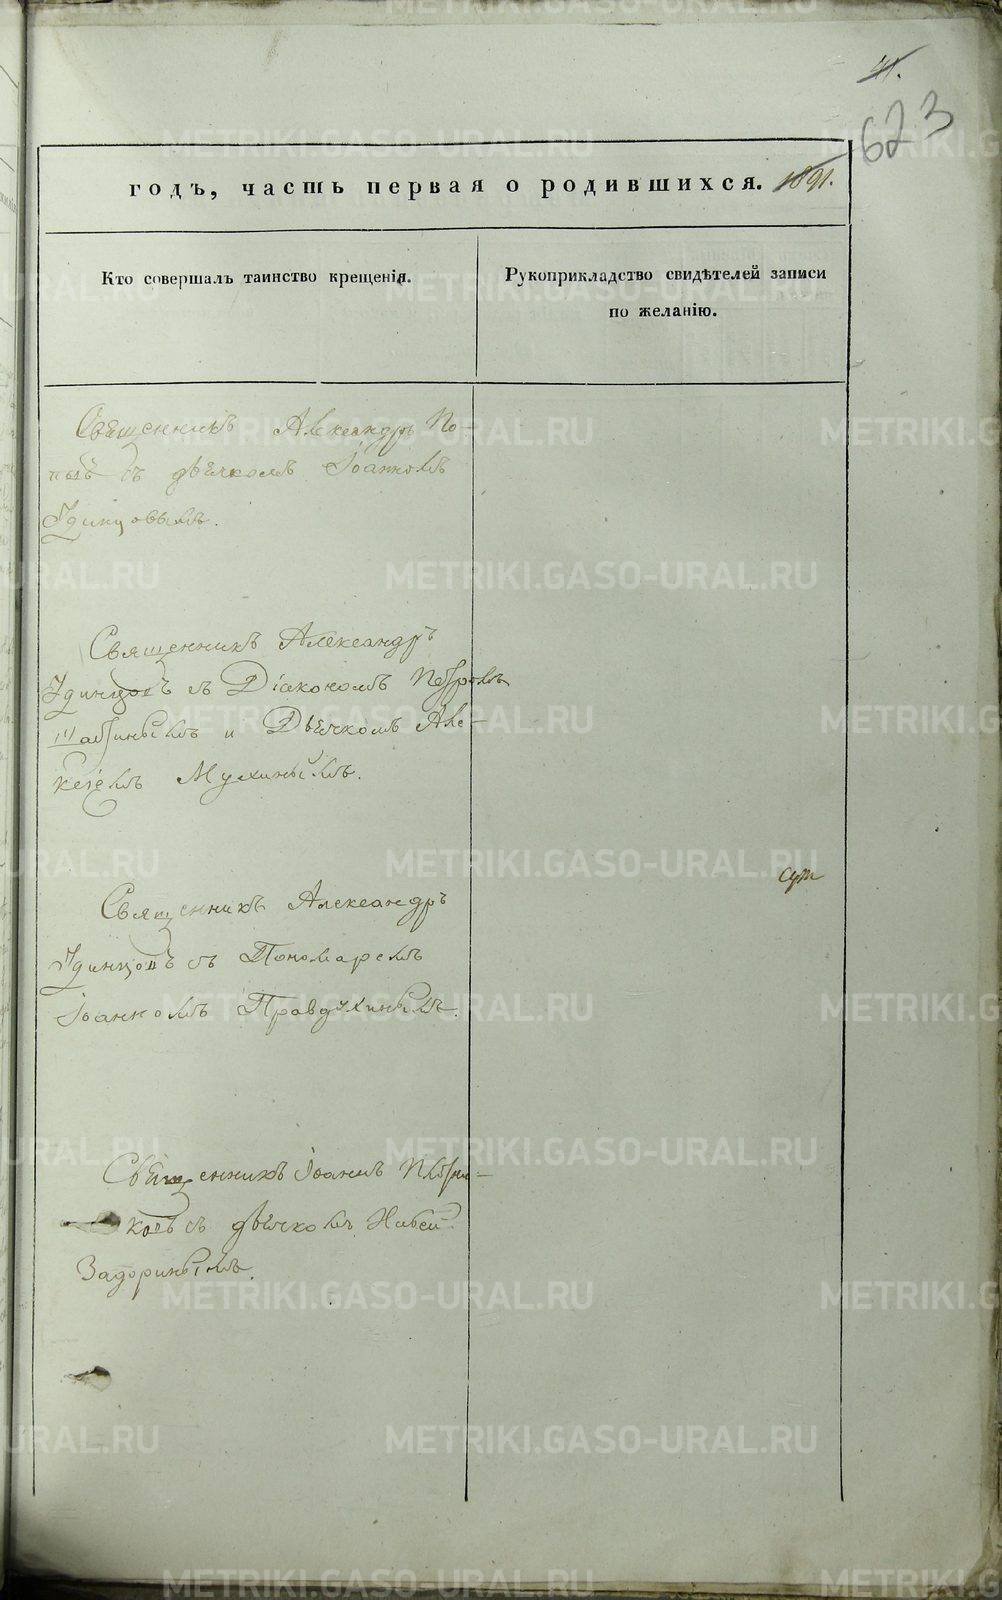 41.
623
годъ, часть первая о родившихся. 1891.
Кто совершалъ таинство крещенія.
Рукоприкладство свидѣтелей записи
по желанію.
Священникъ Александръ По-
повъ съ дьячкомъ Іоанномъ
Удинцовымъ.
Священникъ Александръ
Удинцовъ съ Діакономъ Петромъ
Шабринымъ и Дьячкомъ Але-
ксѣемъ Мухинымъ.
Священникъ Александръ
Удинцовъ съ Пономаремъ
Іоанномъ Правдухинымъ.
Священникъ Іоаннъ
ковъ съ дьячкомъ
Задоринымъ.
METRIKI.GASO-URAL.RU